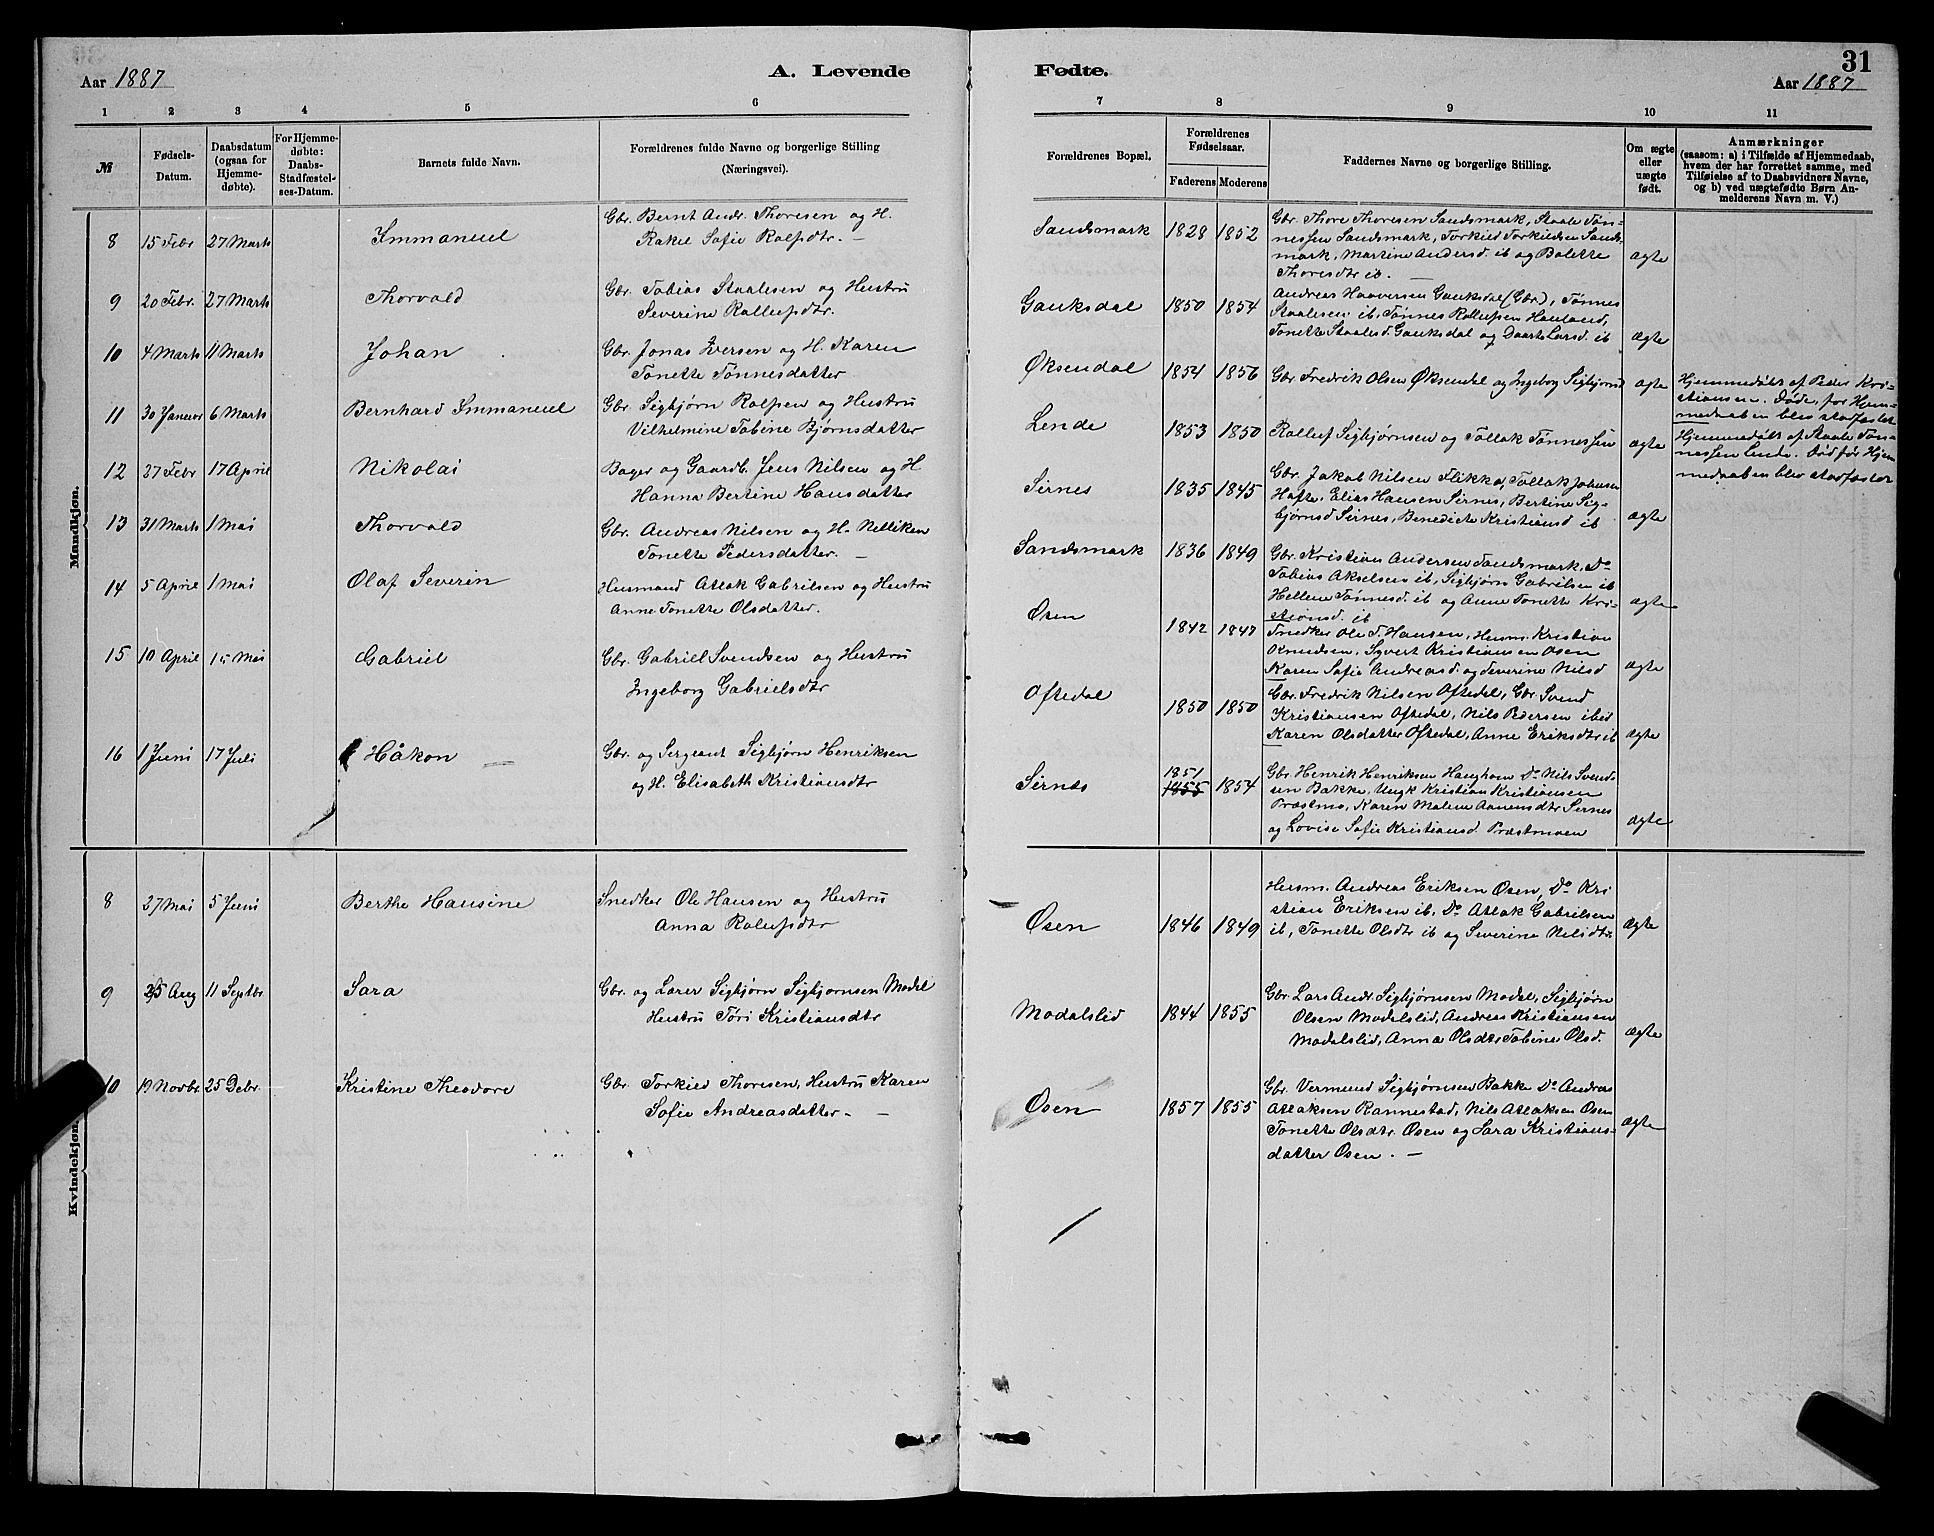 31
Aar 1887
A. Levende
Fødte.
Aar 1887
1 2 3 4 5 6 7 8 9 10 11
№
Fødsels-
Datum.
Daabsdatum
(ogsaa for
Hjemme-
døbte).
For Hjemme-
døbte:
Daabs-
Stadfæstel-
ses-Datum.
Barnets fulde Navn.
Forældrenes fulde Navne og borgerlige Stilling
(Næringsvei).
Forældrenes Bopæl.
Forældrenes
Fødselsaar.
Faderens Moderens
Faddernes Navne og borgerlige Stilling.
Om ægte
eller
uægte
født.
Anmærkninger
(saasom: a) i Tilfælde af Hjemmedaab,
hvem der har forrettet samme, med
Tilføielse af to Daabsvidners Navne,
og b) ved uægtefødte Børn An-
melderens Navn m. V.)
Mandkjøn.
8 15 Febr 27 Marts Immanuel
Gbr. Bernt Andr. Thoresen og H.
Rakel Sofie Rolfsdtr. —
Sandsmark 1828 1852
Gbr. Thore Thoresen Sandsmark, Staale Tøn-
nessen Sandsmark, Torkild Torkildsen Sands-
mark, Martine Andersd. ib og Bolette
Thoresdtr ib. —
ægte
9 20 Febr. 27 Marts Thorvald
Gbr. Tobias Staalesen og Hustru
Severine Rollefsdtr.
Gauksdal 1850 1854
Andreas Haaversen Gauksdal (Gbr), Tønnes
Staalesen ib, Tønnes Rollefsen Hauland,
Tonette Staalesd. Gauksdal og Daarte Larsd. ib
ægte
10 4 Marts 11 Marts Johan
Gbr. Jonas Iversen og H. Karen
Tonette Tønnesdatter
Øksendal 1854 1856
Gbr Fredrik Olsen Øksendal og Ingeborg Sigbjørnsd
ægte
Hjemmedøbt af Peder Kri-
stiansen. Døde, før Hjem-
medaaben blev stadfæstet
11 30 Januar 6 Marts Bernhard Immanuel
Gbr. Sigbjørn Rolfsen og Hustru
Vilhelmine Tobine Bjørnsdatter
Lende 1853 1850
Rolluf Sigbjørnsen og Tollak Tønnessen
ægte
Hjemmedøbt af Staale Tøn-
nessen Lende. Død før Hjem
medaaben blev stadfæstet
12 27 Febr 17 April Nikolai
Bager og Gaardb. Jens Nilsen og H
Hanna Bertine Hansdatter
Sirnes 1835 1845
Gbr. Jakob Nilsen Flikka, Tollak Johansen
Hafte, Elias Hansen Sirnes, Bertine Sig-
bjørnsd Sirnes, Benedicte Kristiansd ib
ægte
13 31 Marts 1 Mai Thorvald
Gbr. Andreas Nilsen og H. Nelliken
Tonette Pedersdatter. —
Sandsmark 1836 1849
Gbr. Kristian Andersen Sandsmark, Do
Tobias Akselsen ib, Sigbjørn Gabrilsen ib
Hellene Tønnesd. ib og Anne Tonette Kri-
stiansd. ib
ægte
14 5 April 1 Mai Olaf Severin
Husmand Atlak Gabrilsen og Hustru
Anne Tonette Olsdatter.
Øsen 1842 1847
Snedker Ole T. Hansen, Husm. Kristian
Knudsen, Syvert Kristiansen Osen
Karen Sofie Andreasd. og Severine Nilsd
ægte
15 10 April 15 Mai Gabriel
Gbr. Gabriel Svendsen og Hustru
Ingeborg Gabrielsdtr
Oftedal 1850 1850
Gbr. Fredrik Nilsen Oftedal, Gbr. Svend
Kristiansen Oftedal, Nils Pedersen ibid
Karen Olsdatter Oftedal, Anne Eriksdtr ib
ægte
16 1 Juni 17 Juli Håkon —
Gbr. og Sergeant Sigbjørn Henriksen
og H. Elisabeth Kristiansdtr
Sirnes 1851 1855 1854
Gbr. Henrik Henriksen Haughom Do Nils Svend-
sen Bakke, Ungk Kristian Kristiansen
Præstmo, Karen Malene Aanensdtr Sirnes
og Lovise Sofie Kristiansd. Præstmoen
ægte
Kvindekjøn.
8 27 Mai 5 Juni Berthe Hansine
Snedker Ole Hansen og Hustru
Anna Rolufsdtr
Øsen 1846 1849
Husm. Andreas Eriksen Øsen, Do Kri-
stian Eriksen ib, Do Atlak Gabrilsen
ib, Tonette Olsdtr ib og Severine Nilsdtr
ægte
9 25 Aug 11 Septbr. Sara
Gbr. og Lærer Sigbjørn Sigbjørnsen Modal
Hustru Tøri Kristiansdtr
Modalslid 1844 1855
Gbr. Lars Andr. Sigbjørnsen Modal, Sigbjørn
Olsen Modalslid, Andreas Kristiansen
Modalslid, Anna Olsdtr Tobine Olsd.
ægte
10 19 Novbr. 25 Debr. Kristine Theodore
Gbr. Torkild Thoresen, Hustru Karen
Sofie Andreasdatter. —
Øsen 1857 1855
Gbr. Vermund Sigbjørnsen Bakke Do Andreas
Atlaksen Rannestad, Nils Atlaksen Øsen
Tonette Olsdtr. Øsen og Sara Kristians-
datter Øsen. —
ægte